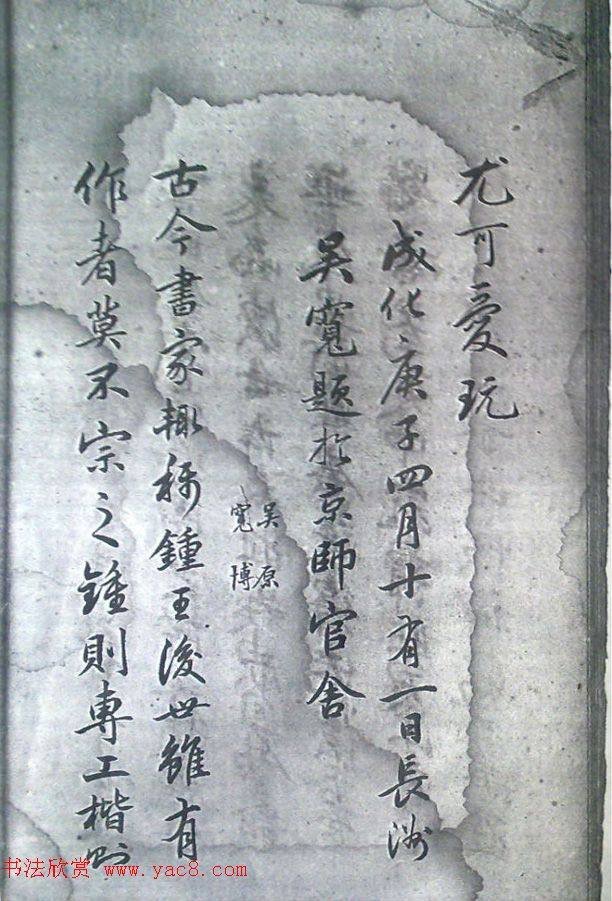 尤可愛玩
成化庚子四月十有一日長洲
吳寬題於京師官舍
吳寬
原博
古今書家輒稱鍾王後世雖有
作者莫不宗之鍾則專工楷則
书法欣赏 www.yac8.com